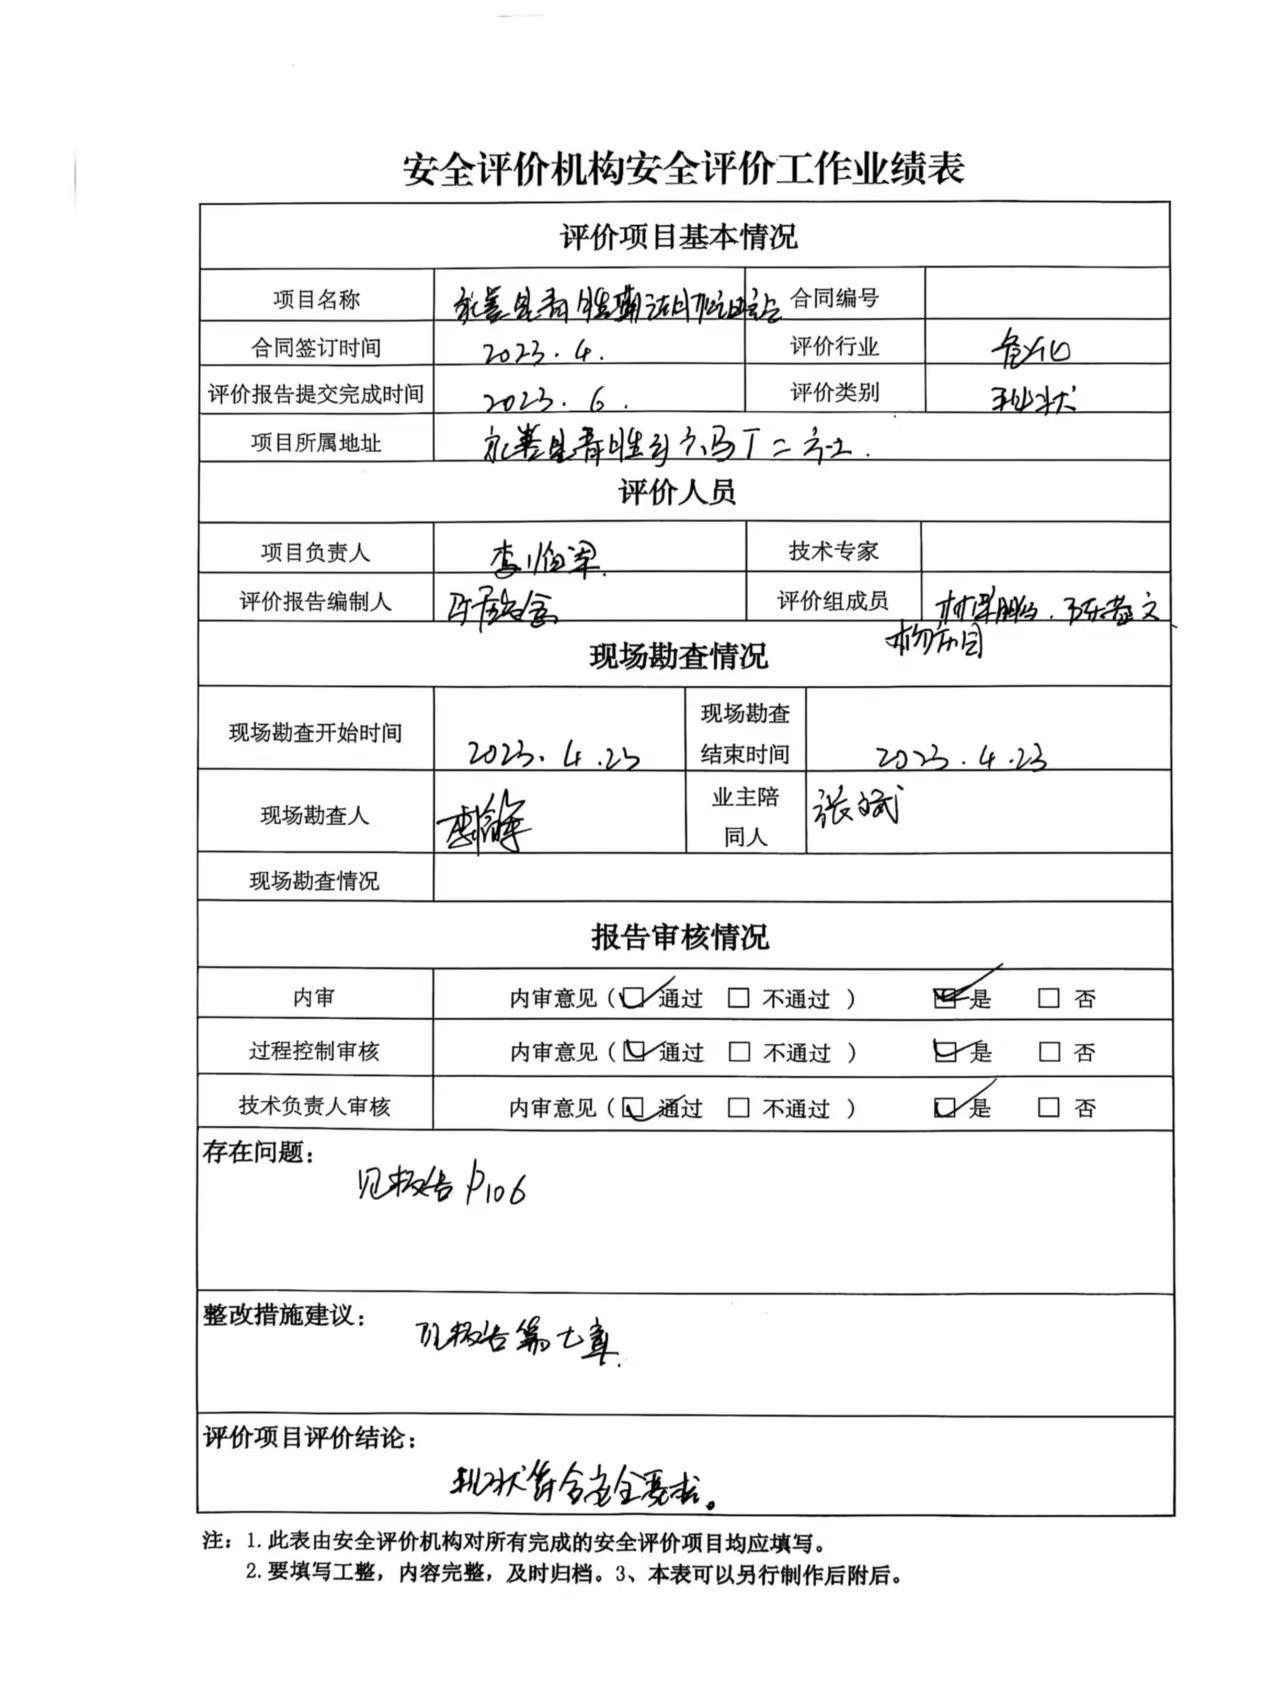 安全评价机构安全评价工作业绩表
评价项目基本情况
项目名称 永善县青胜 加油站 合同编号
合同签订时间 2023.4. 评价行业 危化
评价报告提交完成时间 2023.6. 评价类别 现状
项目所属地址 永善县青胜乡 二社.
评价人员
项目负责人 李 技术专家
评价报告编制人 评价组成员
现场勘查情况
现场勘查开始时间 2023.4.23 现场勘查结束时间 2023.4.23
现场勘查人 业主陪同人 张斌
现场勘查情况
报告审核情况
内审 内审意见(☑通过 □不通过) ☑是 □否
过程控制审核 内审意见(☑通过 □不通过) ☑是 □否
技术负责人审核 内审意见(☑通过 □不通过) ☑是 □否
存在问题:
见报告P106
整改措施建议:
见报告第七章.
评价项目评价结论:
现状符合安全要求。
注:1.此表由安全评价机构对所有完成的安全评价项目均应填写。
2.要填写工整,内容完整,及时归档。3、本表可以另行制作后附后。